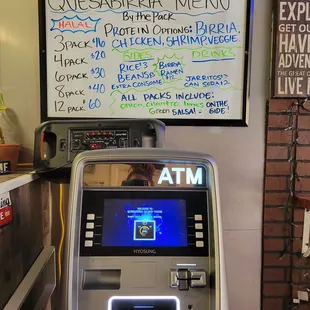 QUESABIRRIA MENU
By the Pack
HALAL
PROTEIN OPTIONS: BIRRIA,
CHICKEN, SHRIMP, VEGGIE
3 PACK
4 PACK $20
6 PACK $30
8 PACK $40
12 PACK $60
SIDES
DRINKS
RICE $3
BEANS $3
EXTRA CONSOME
BIRRIA
RAMEN
JARRITOS $3
CAN SODAS
ALL PACKS INCLUDE:
ONION, CILANTRO, LIMES ON THE
GREEN SALSA! SIDE!
ATM
HYOSUNG
EXPL
GET OU
HAVE
THE GREAT O
LIVE